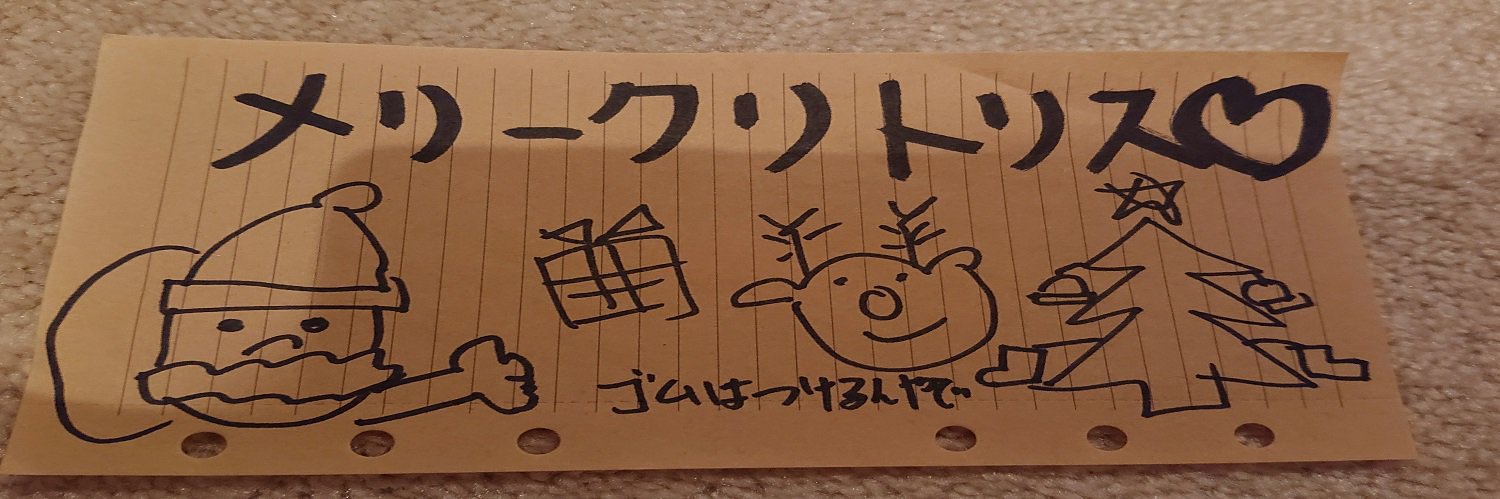 メリークリトリス♡
ゴムはつけるんやで